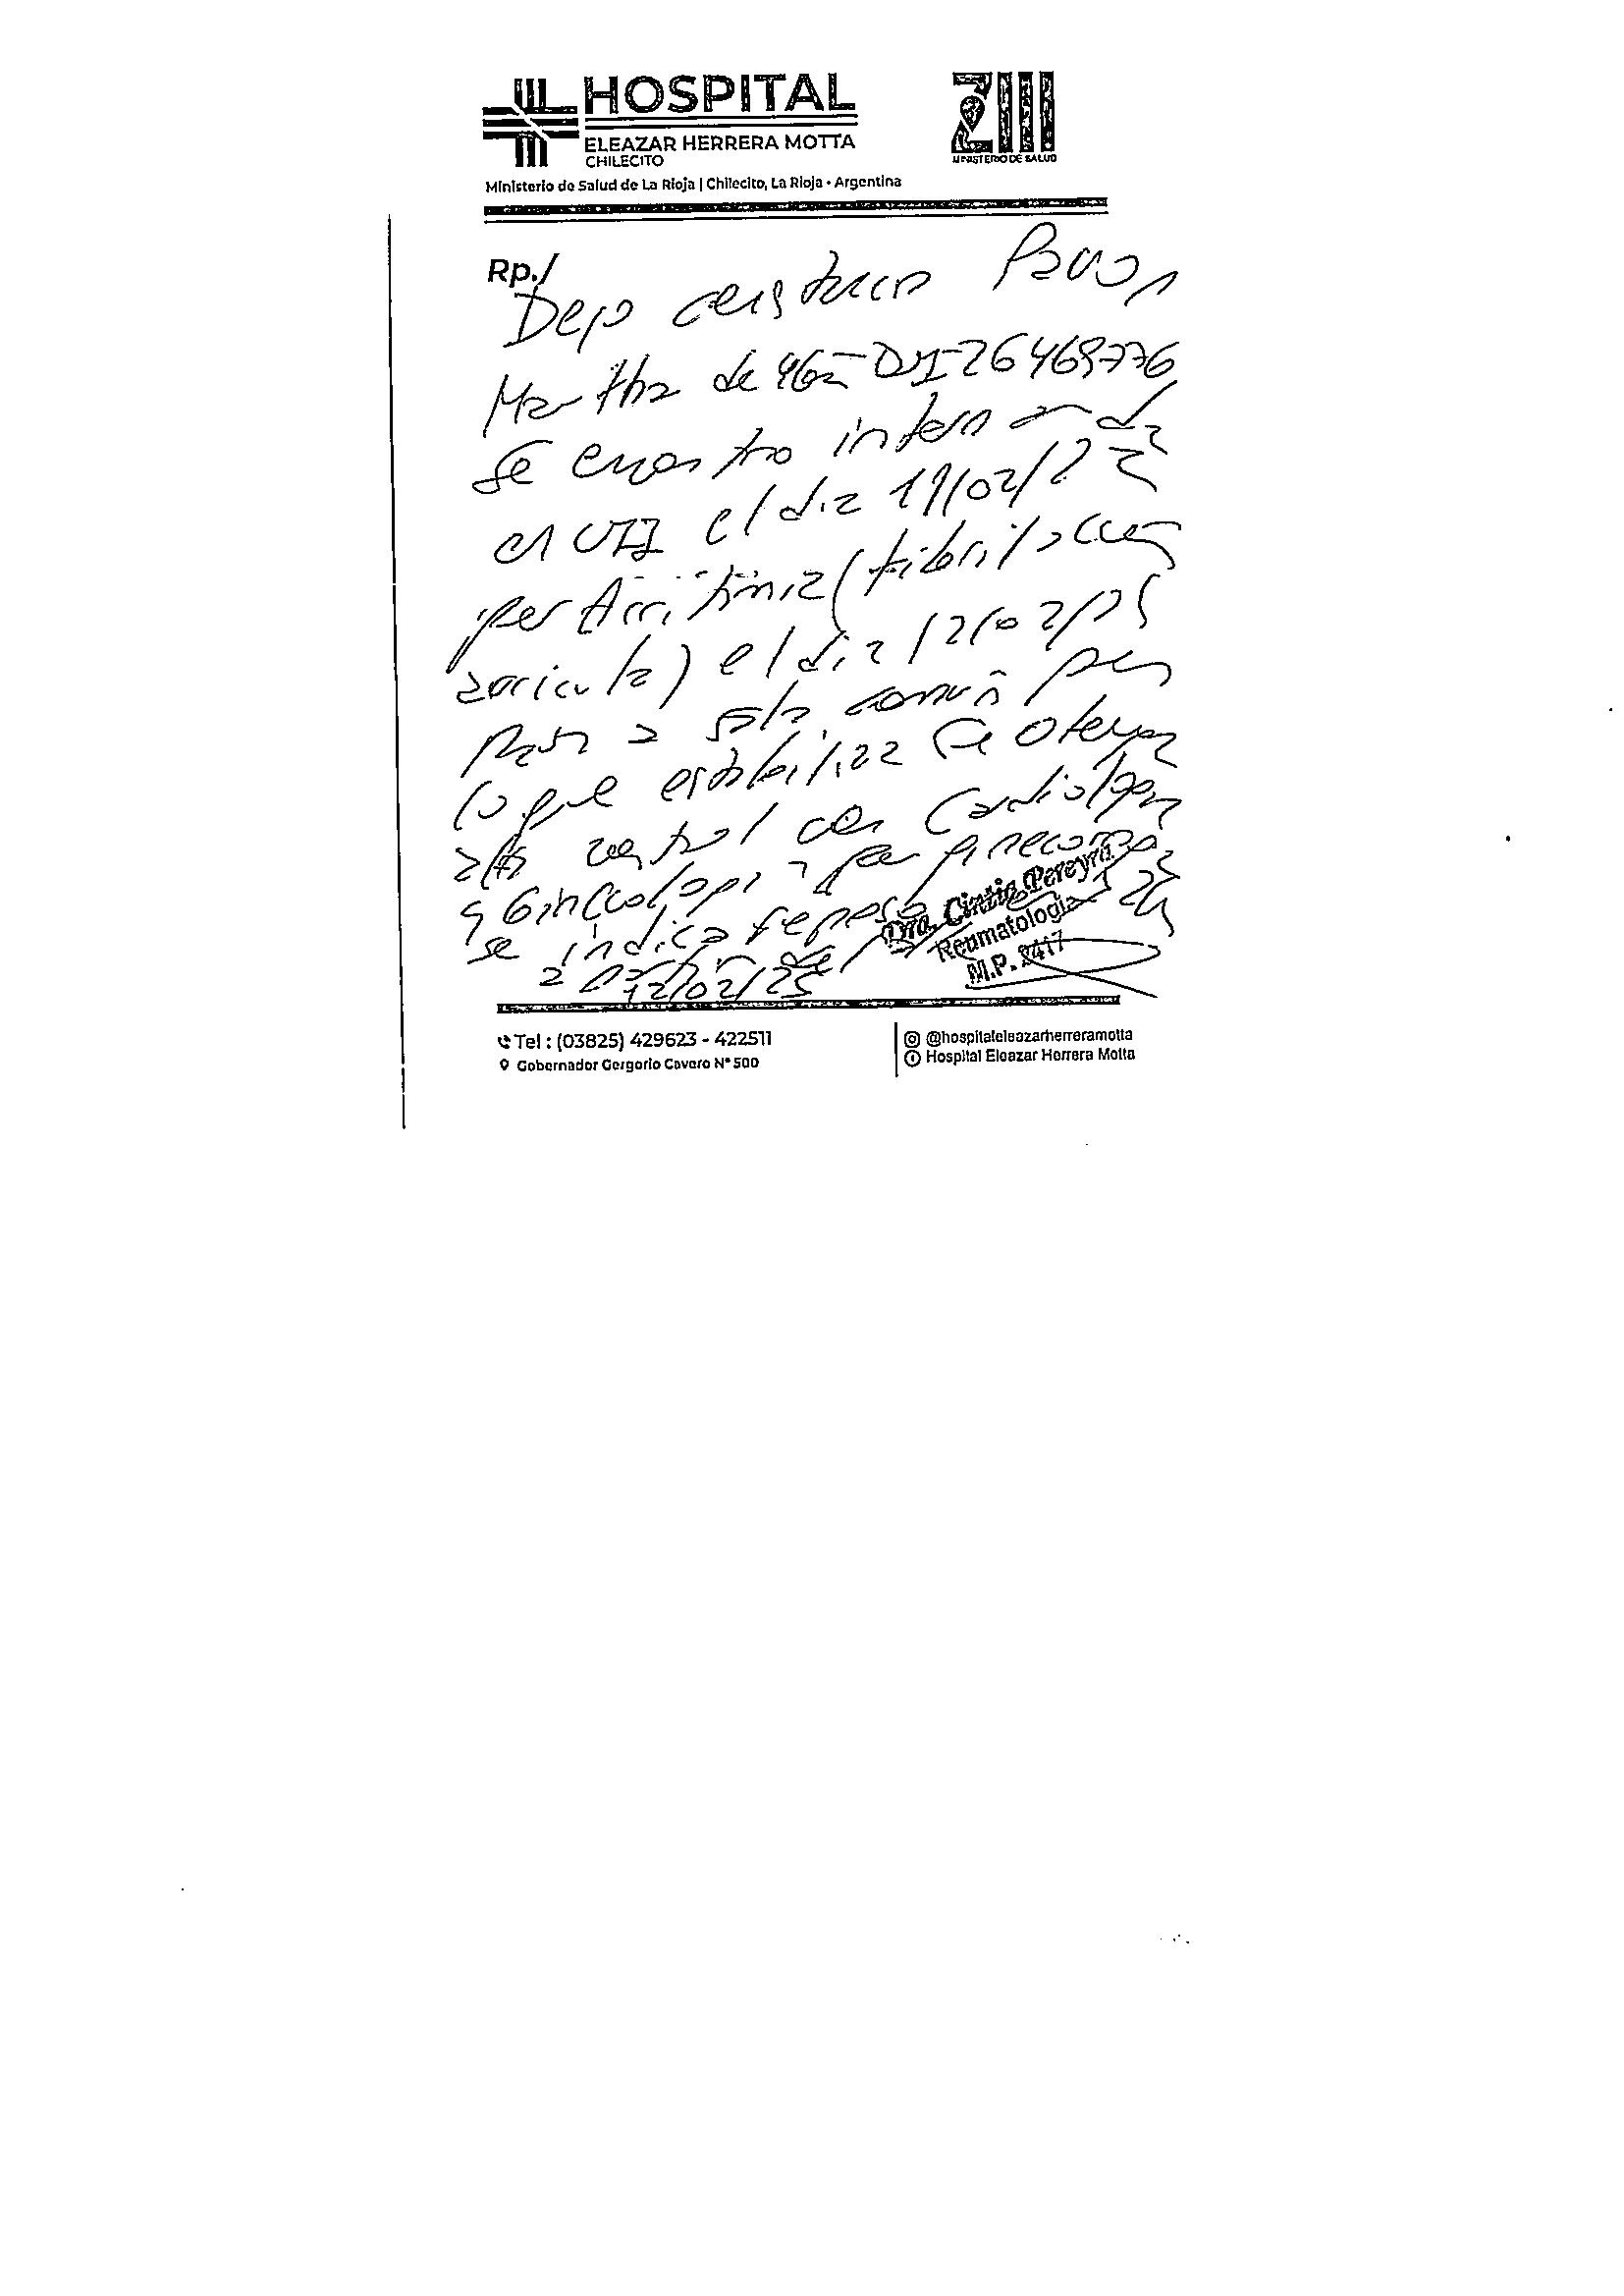 HOSPITAL
ELEAZAR HERRERA MOTTA
CHILECITO
MINISTERIO DE SALUD
Ministerio de Salud de La Rioja | Chilecito, La Rioja • Argentina
Rp./
Dejo constancia
Martha de 46a DNI 26469776
Se encontro internada
en UTI el dia
por Arritmia (fibrilacion
auricular) el dia 12/02/25
paso a sala común
lo que estabiliza se otorga
alta control con Cardiologia
y Ginecologia
se indica reposo
a partir de
12/02/25
Dra. Cintia Pereyra
Reumatologia
M.P. 2417
Tel : (03825) 429623 - 422511
Gobernador Gergorio Cavero N° 500
@hospitaleleazarherreramotta
Hospital Eleazar Herrera Motta